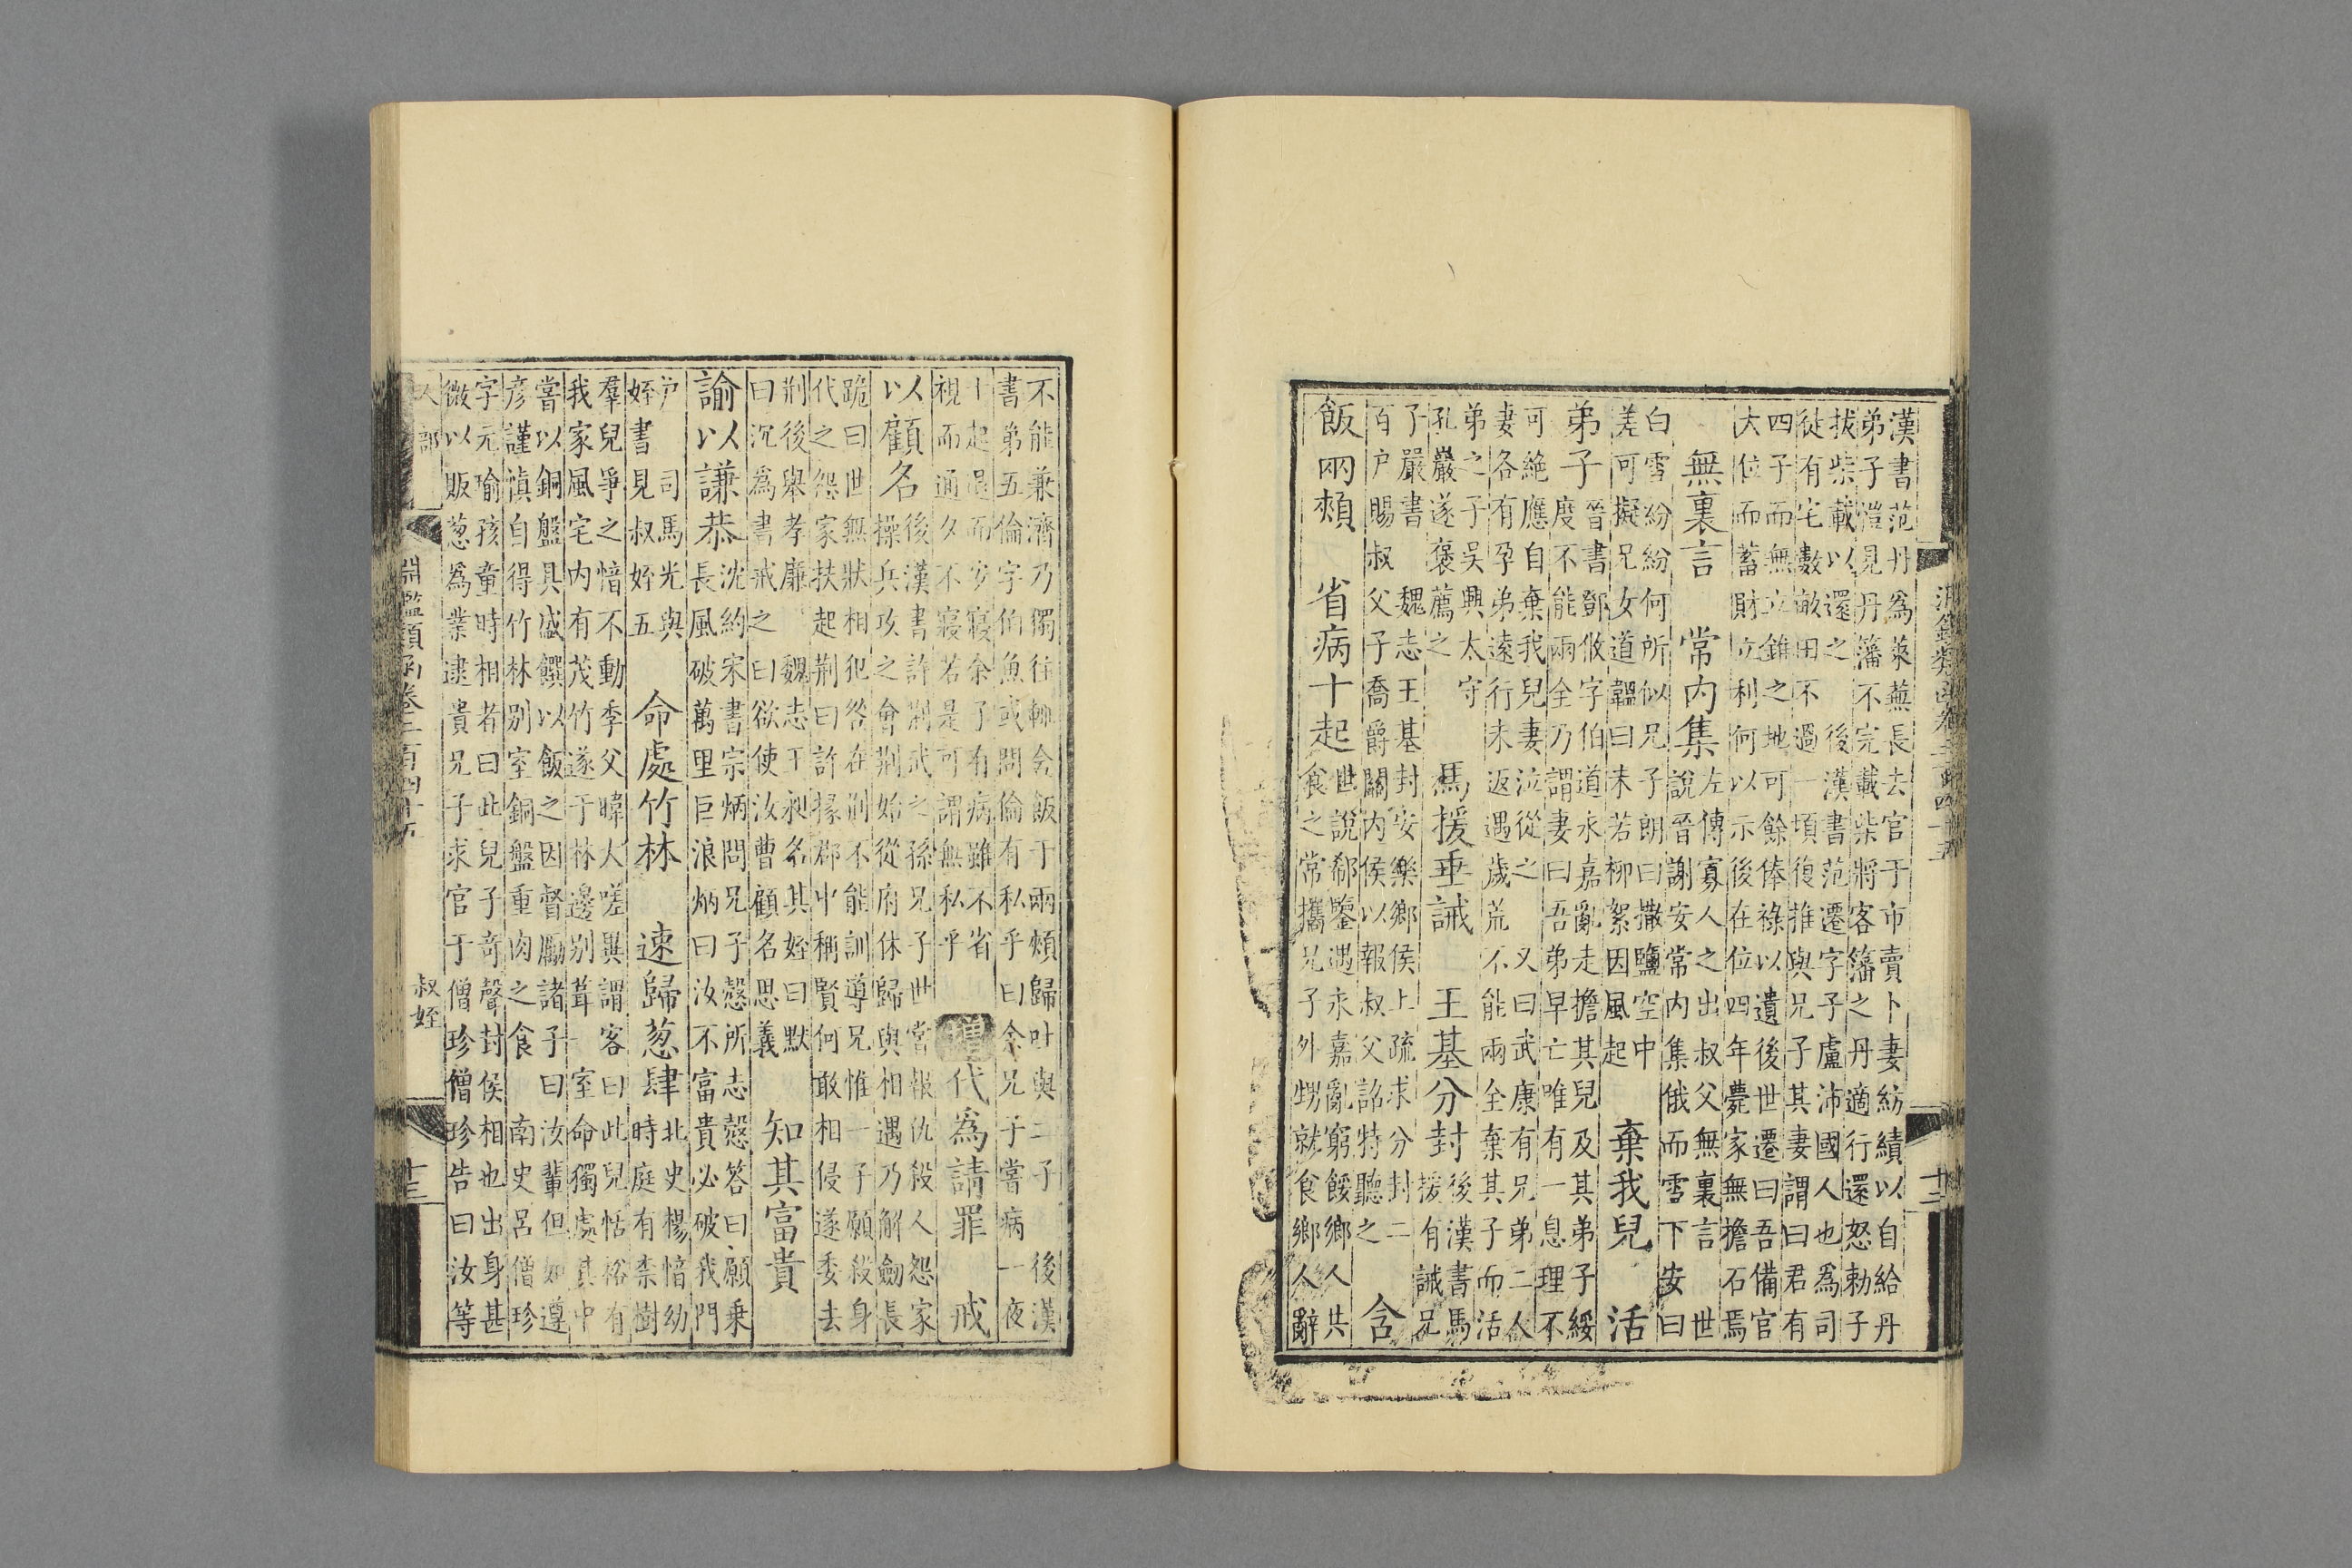 淵鑑類函卷二百四十五
十二
漢書范丹爲萊蕪長去官于市賣卜妻紡績以自給丹
弟子愷見丹籓不完載柴將客籓之丹適行還怒勅子
拔柴載以還之 後漢書范遷字子盧沛國人也爲司
徒有宅數畝田不過一頃復推與兄子其妻謂曰君有
四子而無立錐之地可餘俸祿以遺後世遷曰吾備官
大位而蓄財立利何以示後在位四年薨家無擔石焉
無裏言 常内集
左傳寡人之出叔父無裏言 世
說晉謝安常内集俄而雪下安曰
白雪紛紛何所似兄子朗曰撒鹽空中
差可擬兄女道韞曰未若柳絮因風起
棄我兒 活
弟子
晉書鄧攸字伯道永嘉亂走擔其兒及其弟子綏
度不能兩全乃謂妻曰吾弟早亡唯有一息理不
可絶應自棄我兒妻泣從之 又曰武康有兄弟二人
妻各有孕弟遠行未返遇歲荒不能兩全棄其子而活
弟之子吳興太守
孔巖遂褒薦之
馬援垂誡 王基分封
後漢書馬
援有誡兄
子嚴書 魏志王基封安樂鄉侯上疏求分封二
百户賜叔父子喬爵關内侯以報叔父詔特聽之
含
飯兩頰 省病十起
世說郗鑒遇永嘉亂窮餒鄉人共
食之常攜兄子外甥就食鄉人辭
不能兼濟乃獨往輒含飯于兩頰歸吐與二子 後漢
書弟五倫字伯魚或問倫有私乎曰余兄子嘗病一夜
十起退而安寢余子有病雖不省
視而通夕不寢若是可謂無私乎
增代爲請罪 戒
以顧名
後漢書許荆武之孫兄子世嘗報仇殺人怨家
操兵攻之會荆始從府休歸與相遇乃解劒長
跪曰世無狀相犯咎在荆不能訓導兄惟一子願殺身
代之怨家扶起荆曰許掾郡中稱賢何敢相侵遂委去
荆後舉孝廉 魏志王昶名其姪曰默
曰沉爲書戒之曰欲使汝曹顧名思義
知其富貴
諭以謙恭
沈約宋書宗炳問兄子愨所志愨答曰願乗
長風破萬里巨浪炳曰汝不富貴必破我門
户 司馬光與
姪書見叔姪五
命處竹林 速歸葱肆
北史楊愔幼
時庭有柰樹
羣兒爭之愔不動季父暐大嗟異謂客曰此兒恬裕有
我家風宅内有茂竹遂于林邊别葺一室命獨處其中
嘗以銅盤具盛饌以飯之因督勵諸子曰汝輩但如遵
彦謹慎自得竹林别室銅盤重肉之食 南史呂僧珍
字元瑜孩童時相者曰此兒子竒聲封侯相也出身甚
微以販葱爲業逮貴兄子求官于僧珍僧珍告曰汝等
人部 叔姪
淵鑑類函卷二百四十五
十三